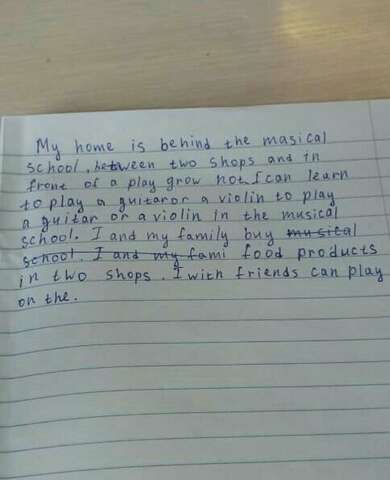 My home is behind the masical
school, between two shops and in
front of a play grow not. I can learn
to play a guitar or a violin to play
a guitar or a violin in the musical
school. I and my family buy musical
school. I and my fami food products
in two shops. I with friends can play
on the.